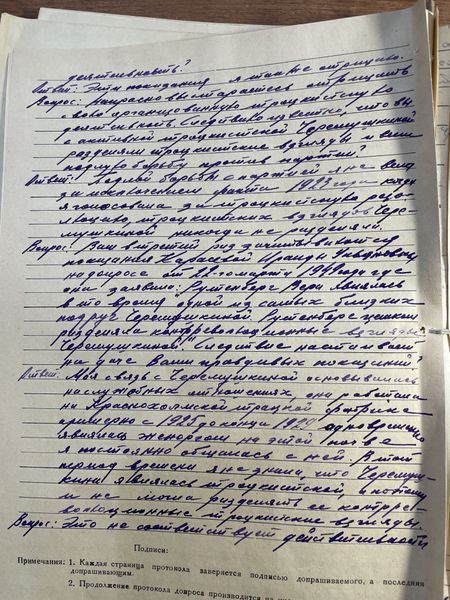 деятельность?
Ответ: Эти показания я также отрицаю.
Вопрос: Напрасно вы стараетесь отрицать
свою организованную троцкистскую
деятельность. Следствию известно, что вы
с активной троцкисткой Черемушкиной
разделяли троцкистские взгляды и вели
подлую борьбу против партии?
Ответ: Подлой борьбы с партией я не вела
за исключением факта 1923 года когда
я голосовала за троцкистскую резо-
люцию, троцкистских взглядов Чере-
мушкиной никогда не разделяла.
Вопрос: Вам в третий раз зачитываются
показания Карасевой
на допросе от 22-го марта 1941 года где
она заявила: "Рутенберг Вера являлась
в то время одной из самых близких
подруг Черемушкиной. Рутенберг целиком
разделяла контрреволюционные взгляды
Черемушкиной." Следствие настаивает
на даче Вами правдивых показаний?
Ответ: Моя связь с Черемушкиной основывалась
на служебных отношениях, она работала
на Краснохолмской фабрике
примерно с 1923 до конца 1924 одновременно
являясь женоргом на этой почве
я постоянно общалась с ней. В этот
период времени я не знала, что Черемуш-
кина являлась троцкисткой, и потому
и не могла разделять ее контрре-
волюционные троцкистские взгляды.
Вопрос: Это не соответствует действительности
Подписи:
Примечания: 1. Каждая страница протокола заверяется подписью допрашиваемого, а последняя
допрашивающим.
2. Продолжение протокола допроса производится на